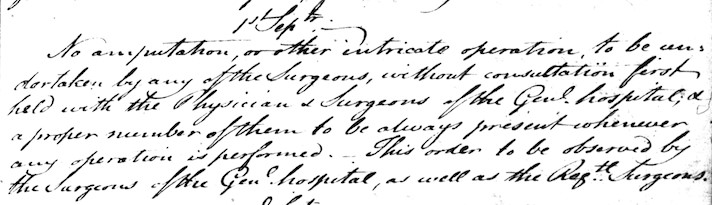 1st Septr.
No amputation, or other intricate operation, to be un-
dertaken by any of the Surgeons, without consultation first
held with the Physician & Surgeons of the Genl. hospital; &
a proper number of them to be always present whenever
any operation is performed. — This order to be observed by
the Surgeons of the Genl. hospital, as well as the Regtl. Surgeons.